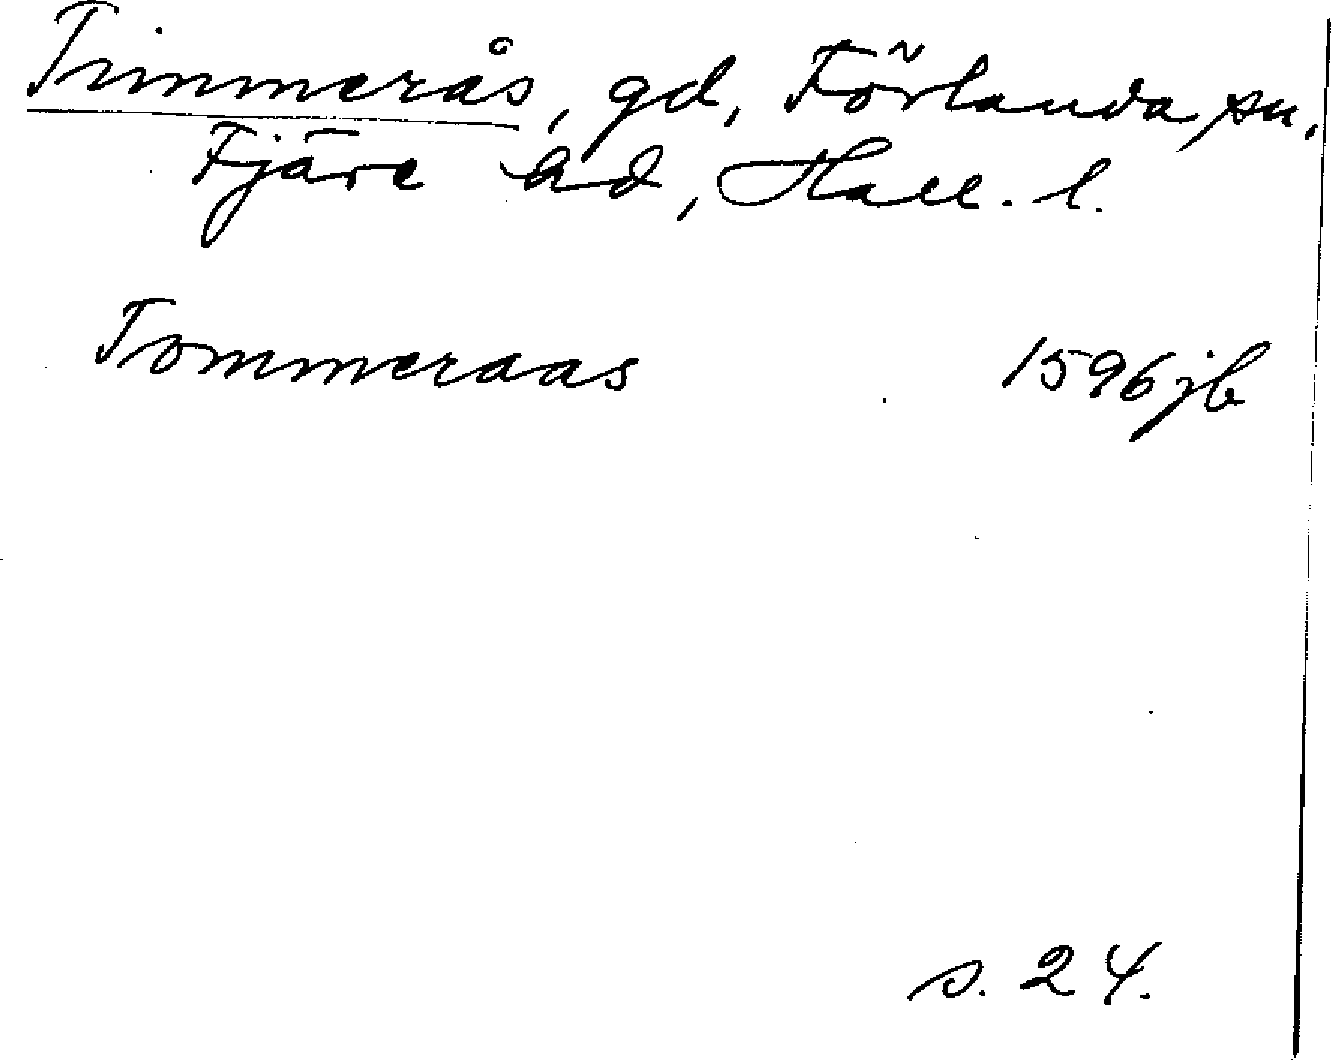 Trimmerås, gd, Förlanda sn,
Fjäre hd, Hall. l.
Tommeraas 1596 jb
s. 24.